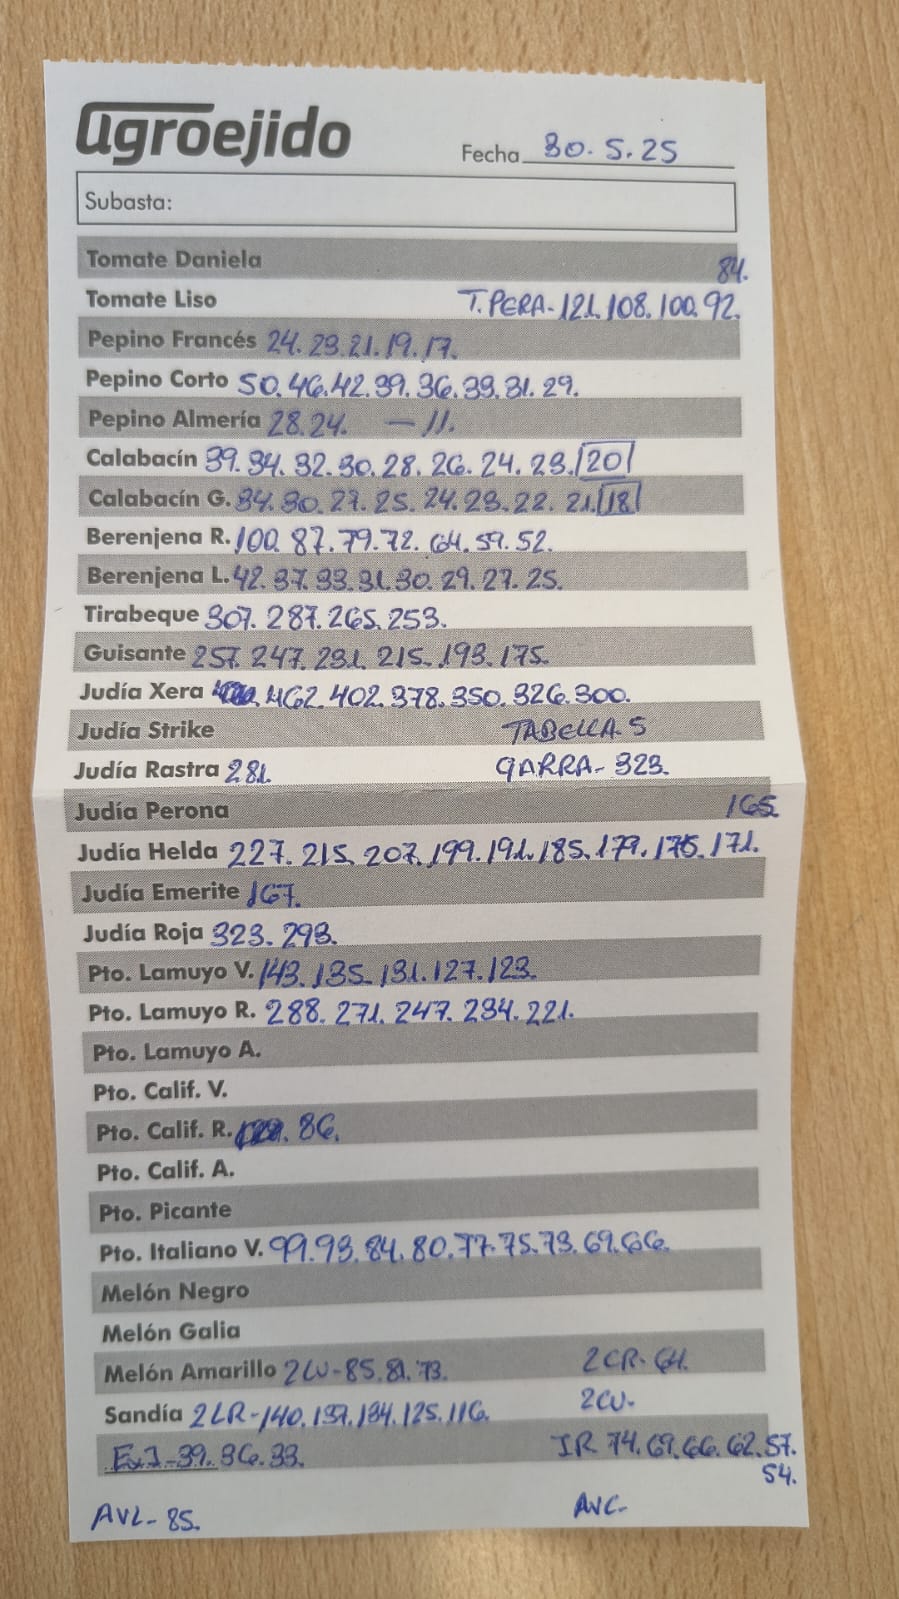 agroejido
Fecha 30.5.25
Subasta:
Tomate Daniela 84.
Tomate Liso T. PERA-121.108.100.92.
Pepino Francés 24.23.21.19.17.
Pepino Corto 50.46.42.39.36.33.31.29.
Pepino Almería 28.24. — 11.
Calabacín 39.34.32.30.28.26.24.23.20
Calabacín G. 34.30.27.25.24.23.22.21.18
Berenjena R. 100.87.79.72.64.59.52.
Berenjena L. 42.37.33.31.30.29.27.25.
Tirabeque 307.287.265.253.
Guisante 257.247.231.215.193.175.
Judía Xera 462.402.378.350.326.300.
Judía Strike TABELLA 5
Judía Rastra 281. GARRA-323.
Judía Perona 165.
Judía Helda 227.215.207.199.191.185.179.175.171.
Judía Emerite 167.
Judía Roja 323.293.
Pto. Lamuyo V. 143.135.131.127.123.
Pto. Lamuyo R. 288.271.247.234.221.
Pto. Lamuyo A.
Pto. Calif. V.
Pto. Calif. R. 86.
Pto. Calif. A.
Pto. Picante
Pto. Italiano V. 99.93.84.80.77.75.73.69.66.
Melón Negro
Melón Galia
Melón Amarillo 2LV-85.81.73. 2CR-64.
Sandía 2LR-140.137.134.125.116. 2CV-
39.36.33. IR 74.69.66.62.57.
54.
AVL-85. AVC-